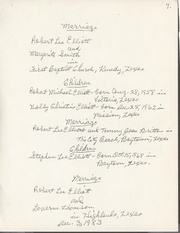 7.
Marriage
Robert Lee Elliott
and
Margaret Smith
in
First Baptist Church, Kenedy, Texas
Children
Robert Michael Elliott - Born Aug. 28, 1958 in
Victoria, Texas
Kelly Christine Elliott - Born Dec. 25, 1962 in
Mission, Texas
Marriage
Robert Lee Elliott and Tommy Jean Britton in
City, Texas
Children
Stephen Lee Elliott - Born Oct. 15, in
Baytown, Texas.
Marriage
Robert Lee Elliott
and
Lovern Thomison
in Highlands, Texas
Dec. 3, 1983